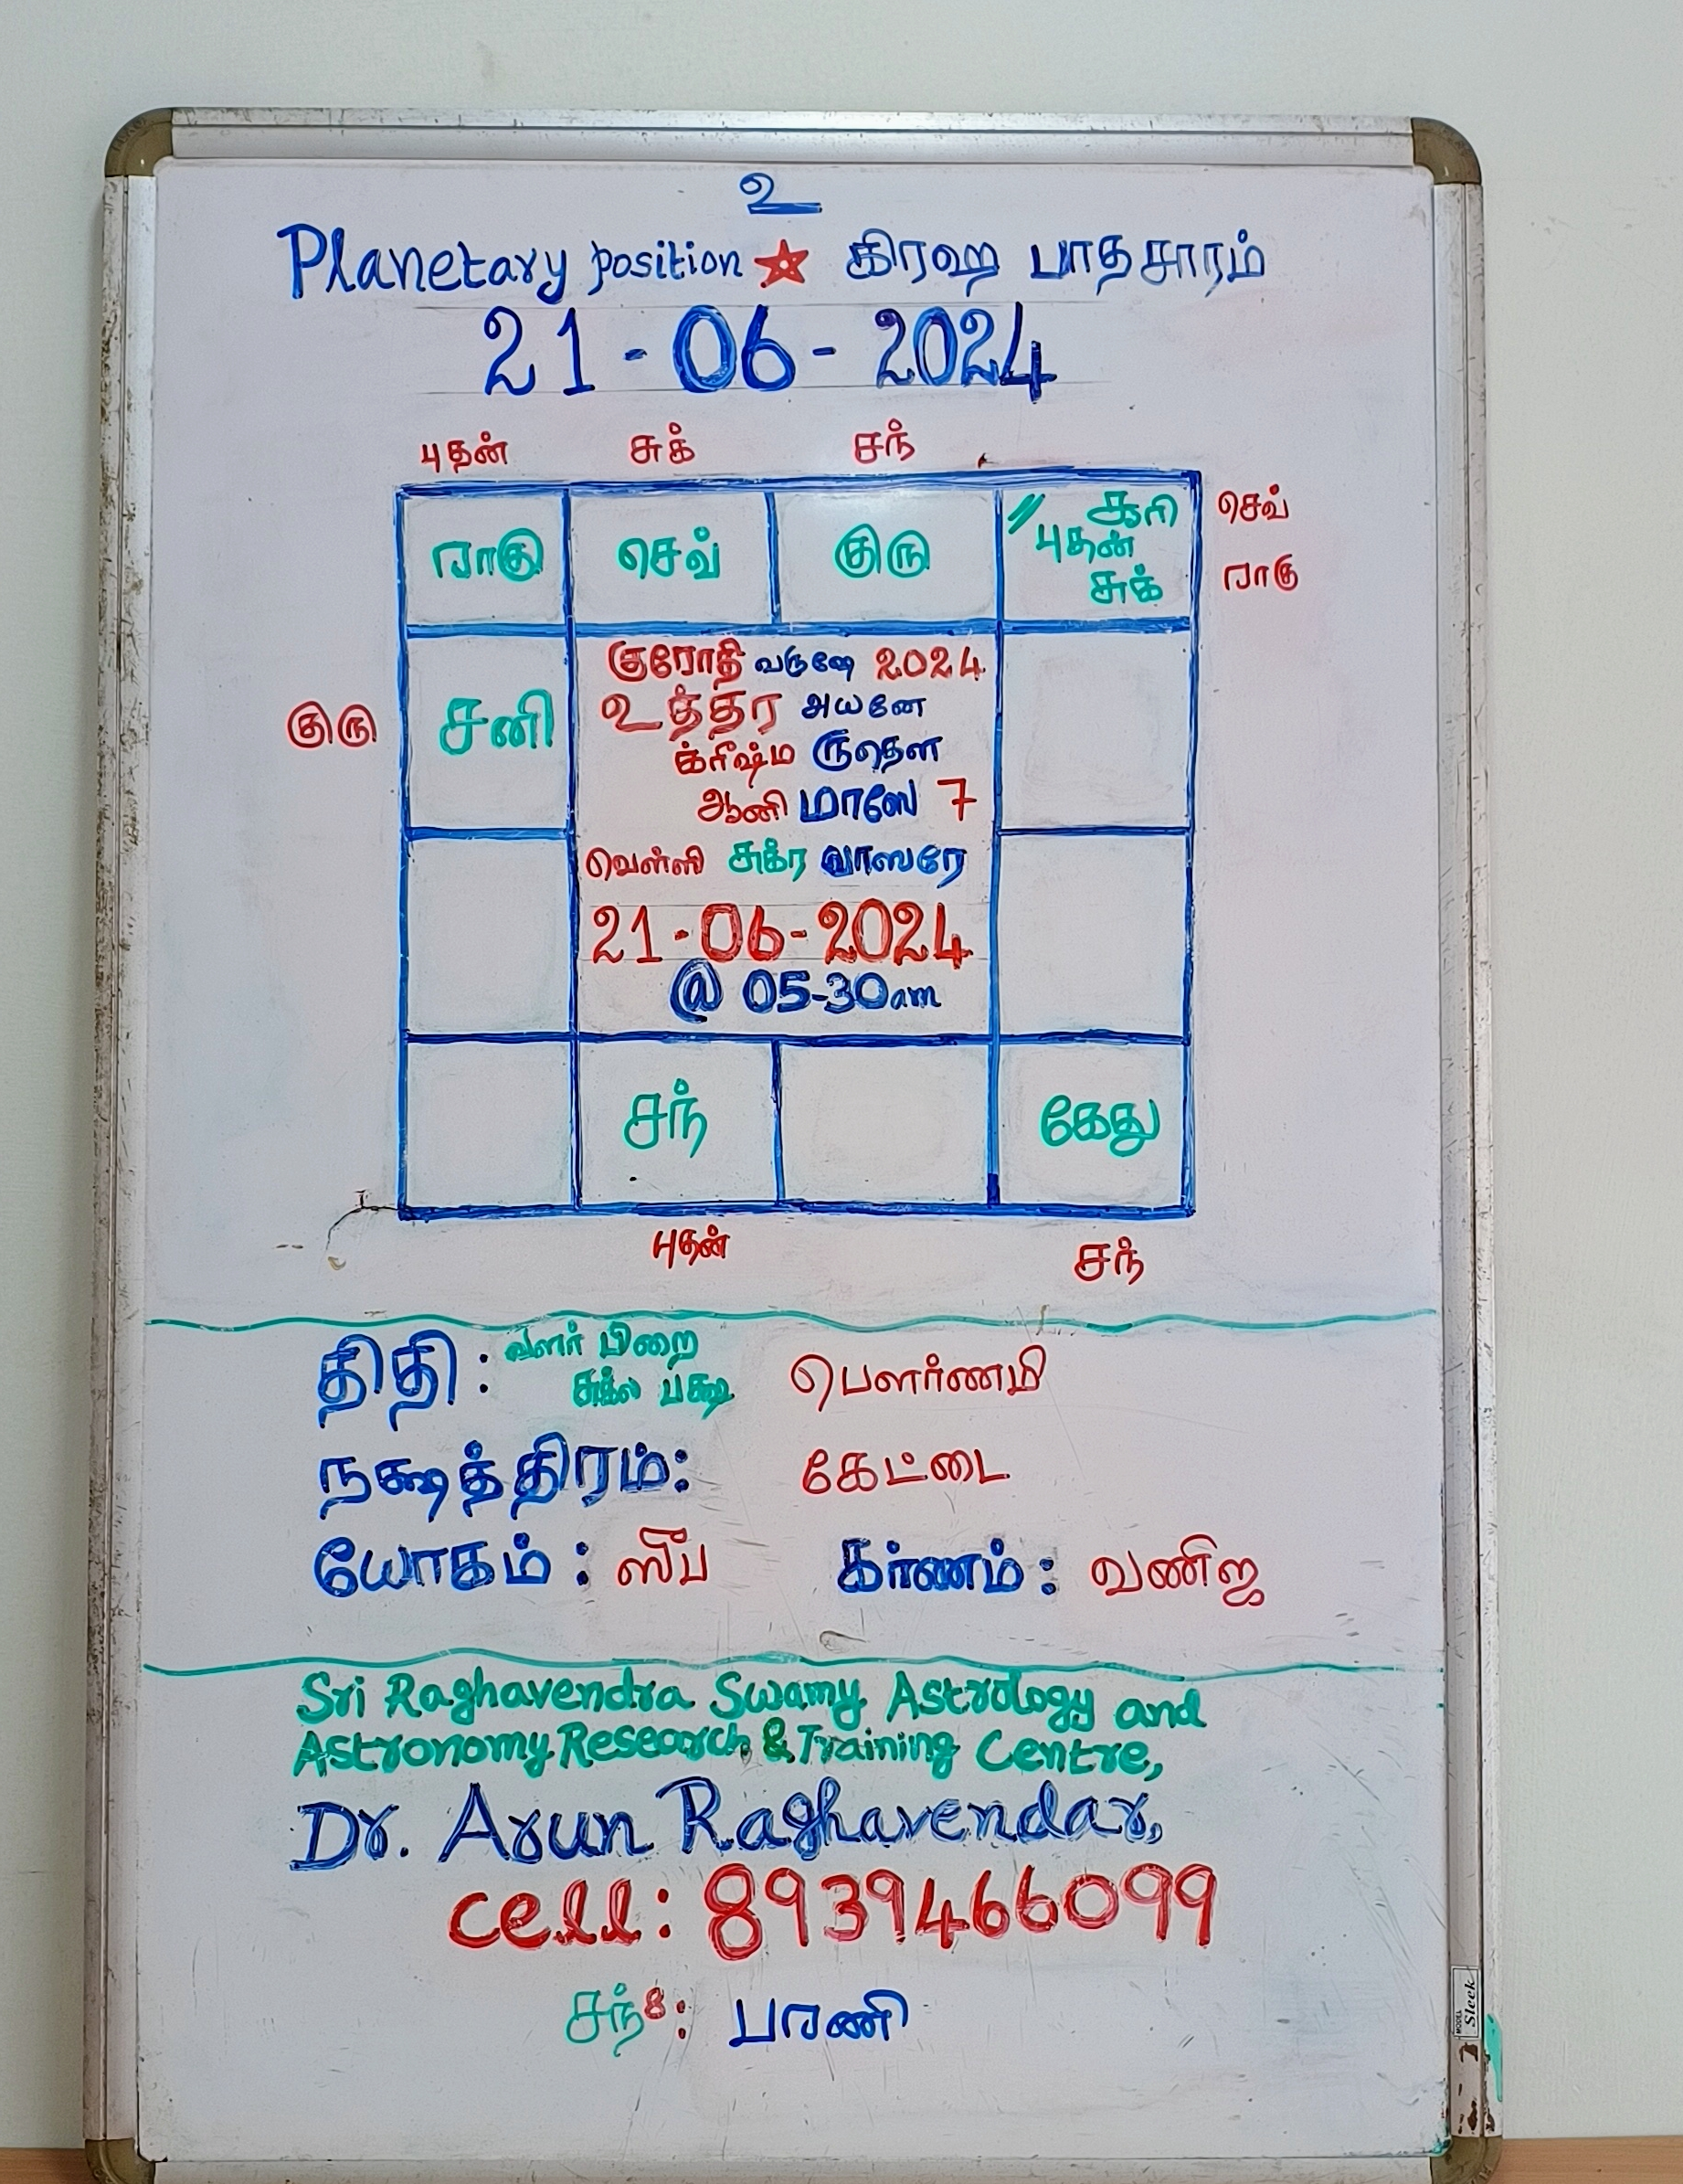 உ
Planetary position ★ கிரஹ பாதசாரம்
21-06-2024
புதன் சுக் சந்
ராகு செவ் குரு சூரி செவ்
புதன்
சுக் ராகு
குரோதி வருஷே 2024
உத்தர அயனே
குரு சனி
க்ரீஷ்ம ருதௌ
ஆனி மாஸே 7
வெள்ளி சுக்ர வாஸரே
21-06-2024
@ 05-30am
சந் கேது
புதன் சந்
திதி: வளர் பிறை பௌர்ணமி
சுக்ல பக்ஷ
நக்ஷத்திரம்: கேட்டை
யோகம்: கர்ணம்: வணிஜ
Sri Raghavendra Swamy Astrology and
Astronomy Research & Training Centre,
Dr. Arun Raghavendar,
cell: 8939466099
சந்8: பரணி
MODEL Sleek